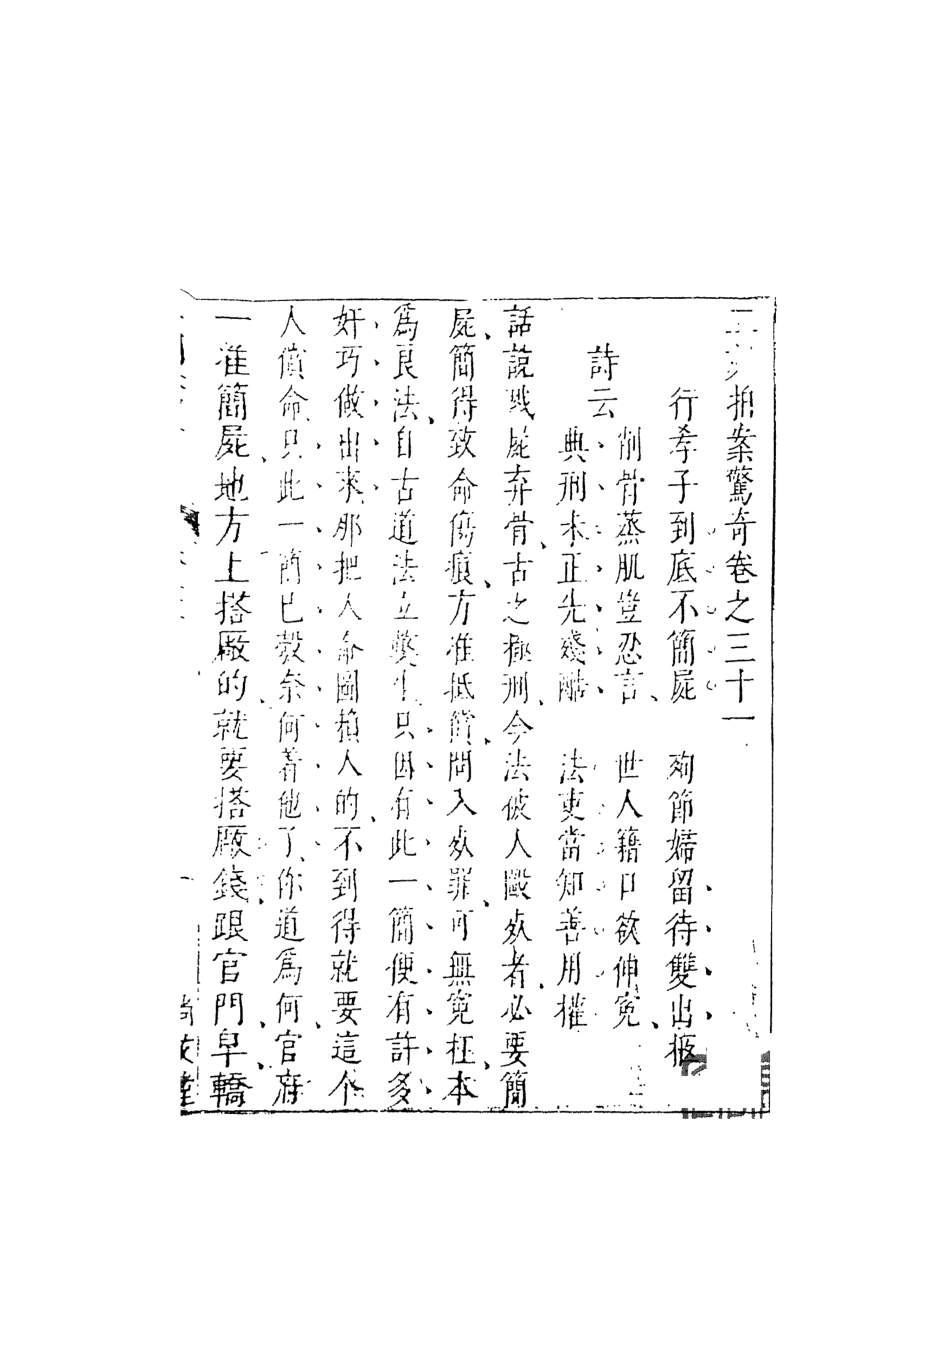 二刻拍案驚奇卷之三十一
行孝子到底不簡屍　殉節婦留待雙出柩
詩云
削骨蒸肌豈忍言　世人籍口欲伸寃
典刑未正先殘酷　法吏當知善用權
話說戮屍弃骨古之極刑今法被人毆死者必要簡
屍簡得致命傷痕方准抵償問入死罪可無寃枉本
爲良法自古道法立獘生只因有此一簡便有許多
奸巧做出來那把人命圖賴人的不到得就要這个
人償命只此一簡已彀奈何着他了你道爲何官府
一准簡屍地方上搭厰的就要搭厰錢跟官門皁轎
尚友堂